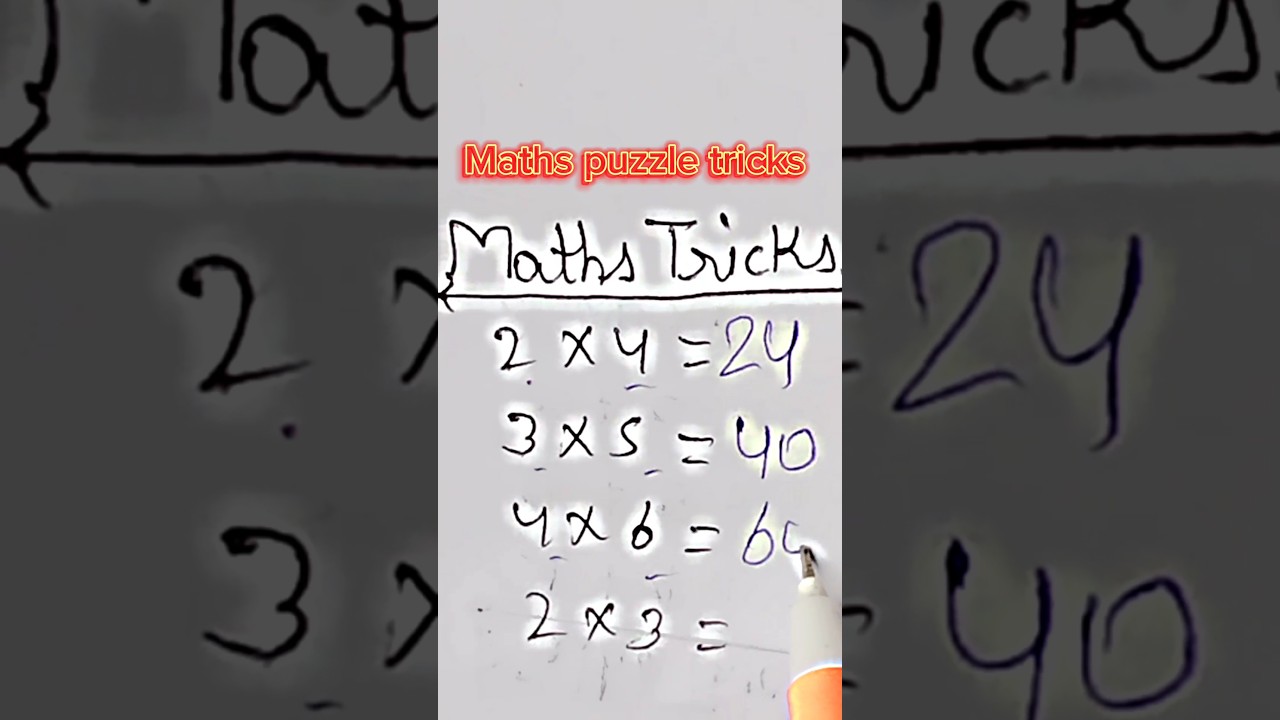 Maths puzzle tricks
Maths Tricks
2 x 4 = 24
3 x 5 = 40
4 x 6 = 6
2 x 3 =